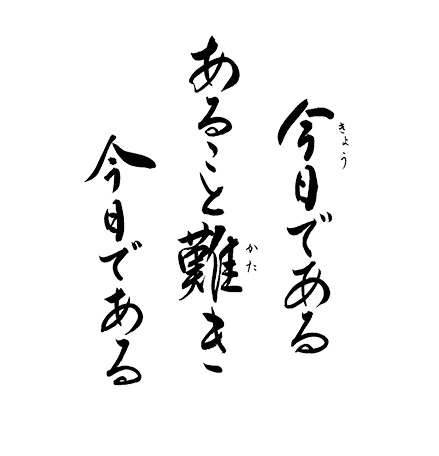 今日である
きょう
あること難き
かた
今日である